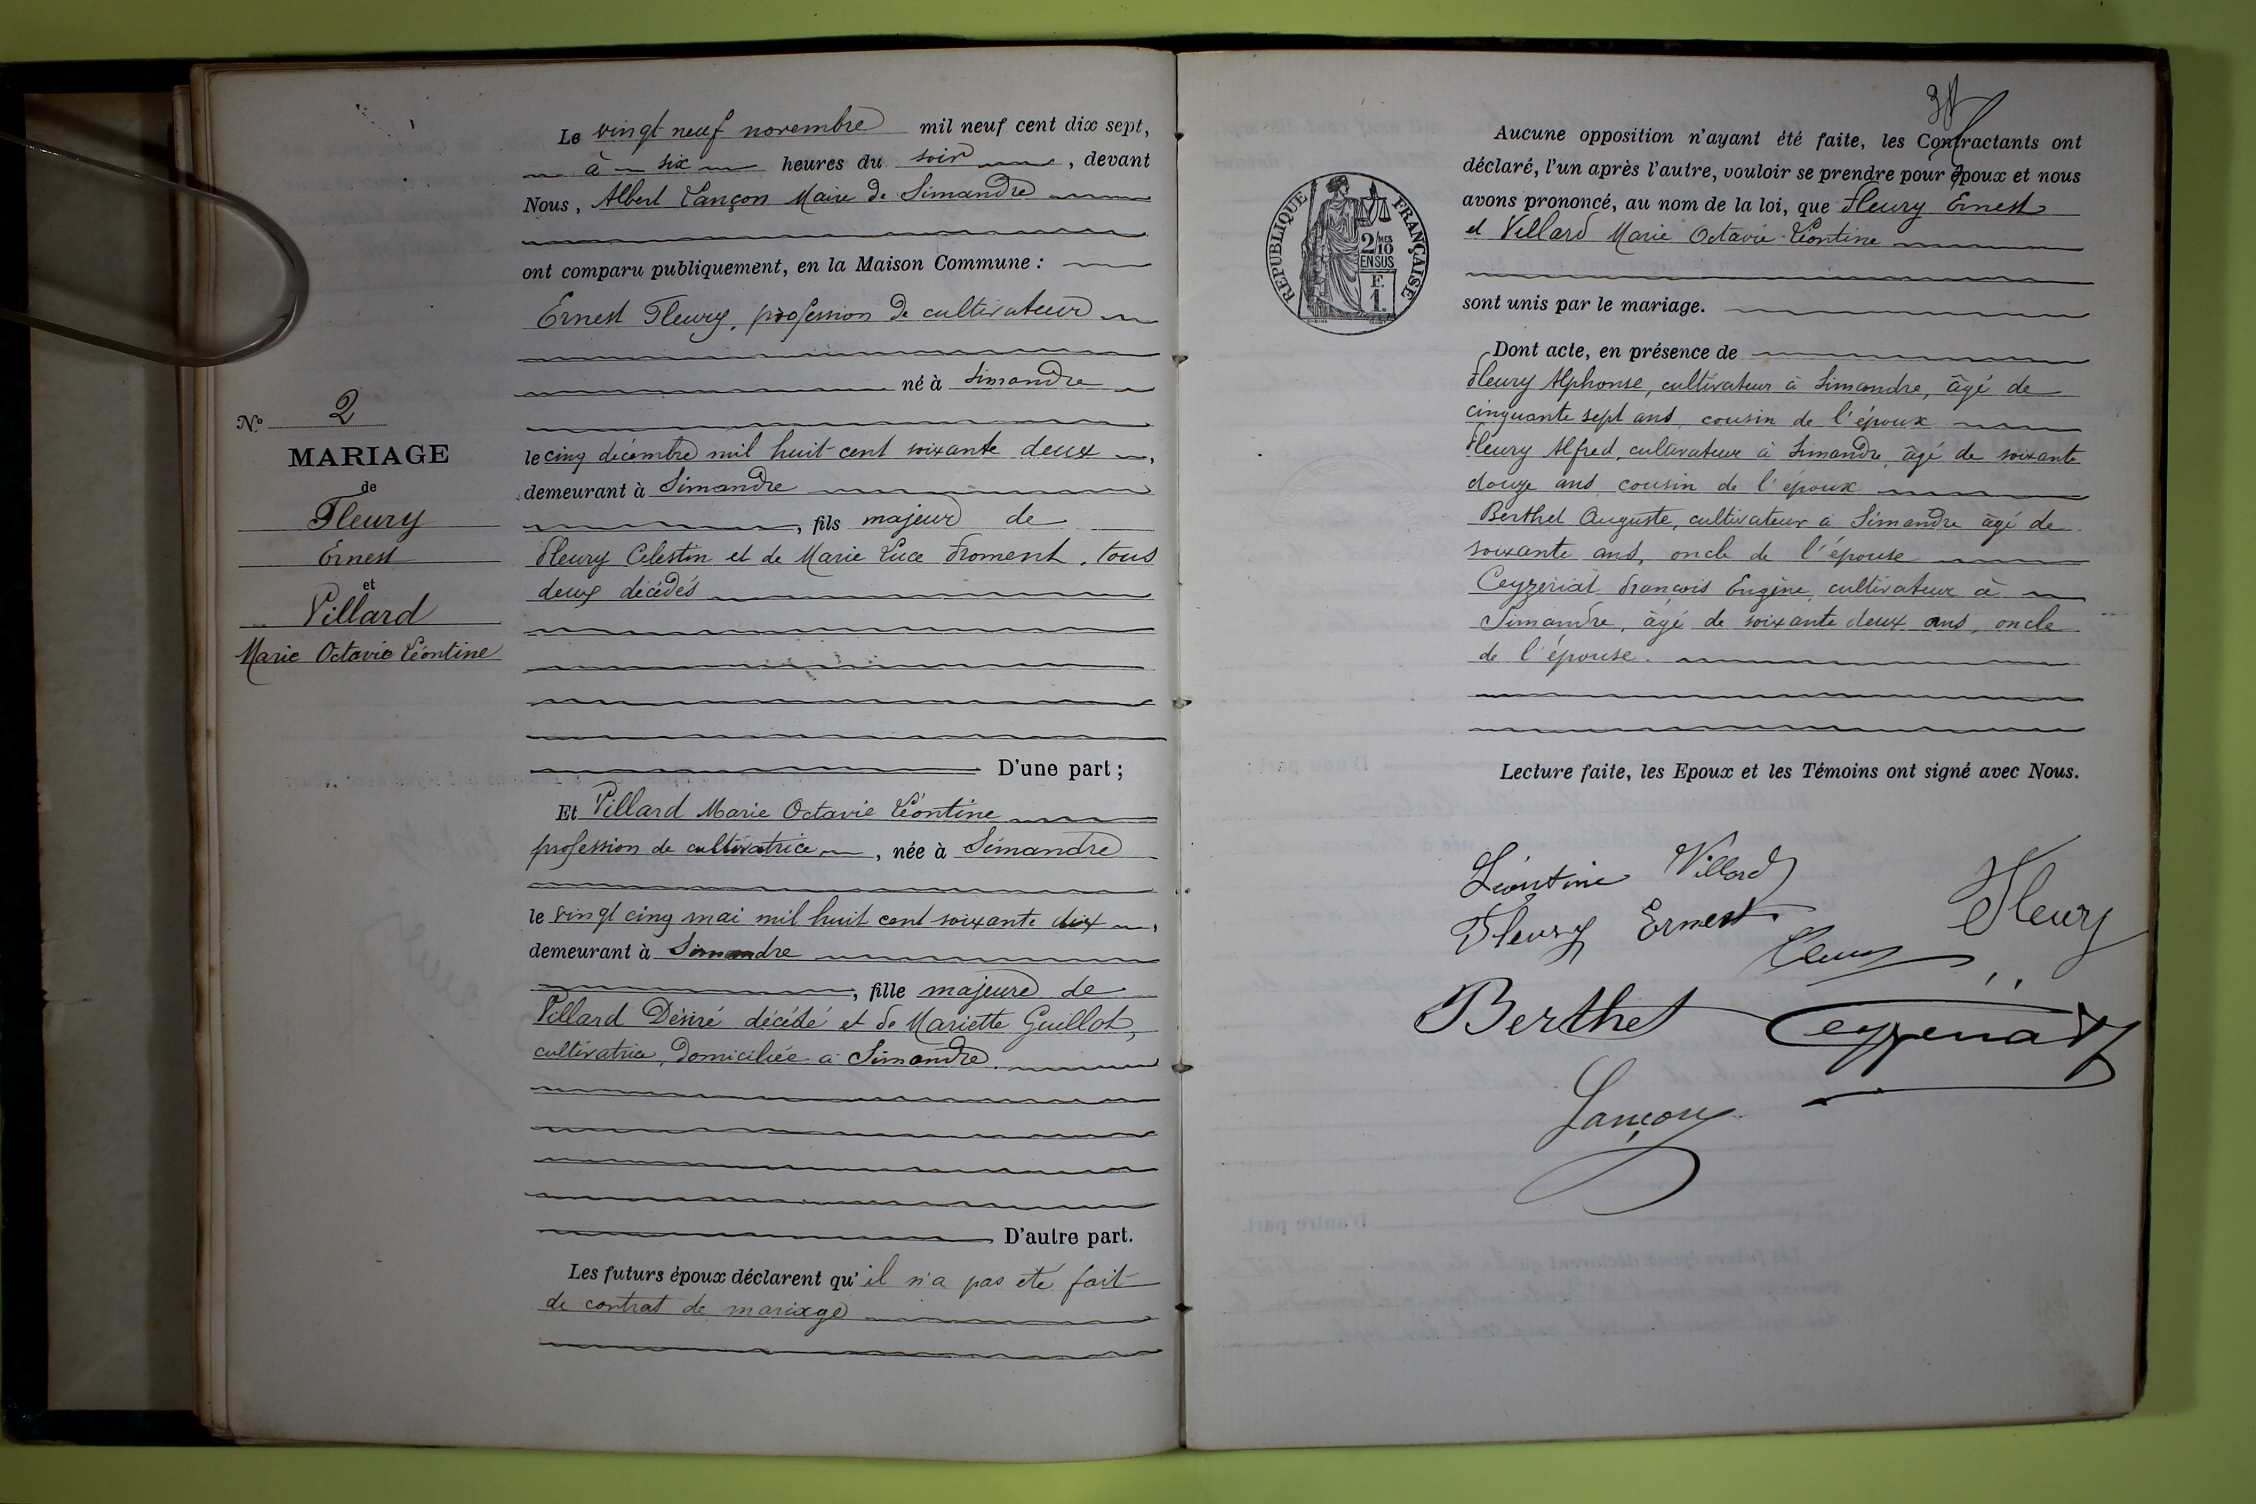 Le vingt neuf novembre mil neuf cent dix sept,
à six heures du soir, devant
Nous, Albert Lançon Maire de Simandre
ont comparu publiquement, en la Maison Commune :
Ernest Fleury, profession de cultivateur
né à Simandre
le cinq décembre mil huit cent soixante deux,
demeurant à Simandre
, fils majeur de
Fleury Celestin et de Marie Luce Froment, tous
deux décédés
D'une part ;
Et Villard Marie Octavie Léontine
profession de cultivatrice, née à Simandre
le vingt cinq mai mil huit cent soixante dix,
demeurant à Simandre
, fille majeure de
Villard Désiré décédé et de Mariette Guillot,
cultivatrice, domiciliée à Simandre.
D'autre part.
Les futurs époux déclarent qu'il n'a pas été fait
de contrat de mariage
No 2
MARIAGE
de
Fleury
Ernest
et
Villard
Marie Octavie Léontine
Aucune opposition n'ayant été faite, les Contractants ont
déclaré, l'un après l'autre, vouloir se prendre pour époux et nous
avons prononcé, au nom de la loi, que Fleury Ernest
et Villard Marie Octavie Léontine
sont unis par le mariage.
Dont acte, en présence de
Fleury Alphonse, cultivateur à Simandre, âgé de
cinquante sept ans, cousin de l'époux
Fleury Alfred, cultivateur à Simandre, âgé de soixante
douze ans, cousin de l'époux
Berthet Auguste, cultivateur à Simandre âgé de
soixante ans, oncle de l'épouse
Ceyzériat François Eugène, cultivateur à
Simandre, âgé de soixante deux ans, oncle
de l'épouse.
Lecture faite, les Epoux et les Témoins ont signé avec Nous.
Léontine Villard
Fleury Ernest
Fleury
Fleury
Berthet
Ceyzériat
Lançon
RÉPUBLIQUE FRANÇAISE
2/10 MES
EN SUS
F.
1.